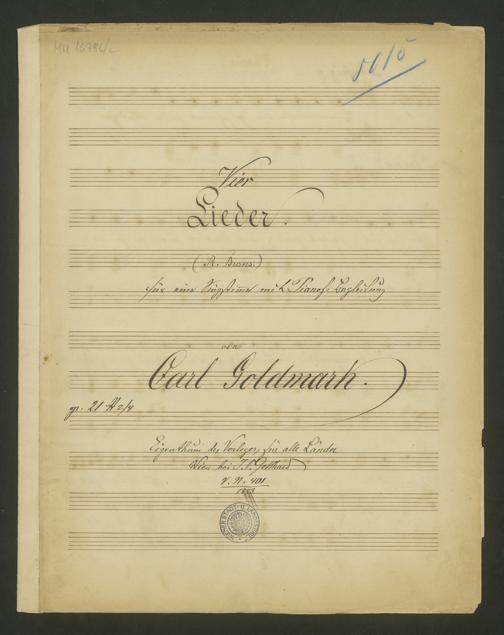 MH 16786/c
5015
Vier
Lieder.
(R. Burns.)
für eine Singstimme mit Pianof. Begleitung
von
Carl Goldmark.
op. 21 H 2/4
Eigenthum des Verlegers für alle Länder
Wien bei J. P. Gotthard
V. N. 401